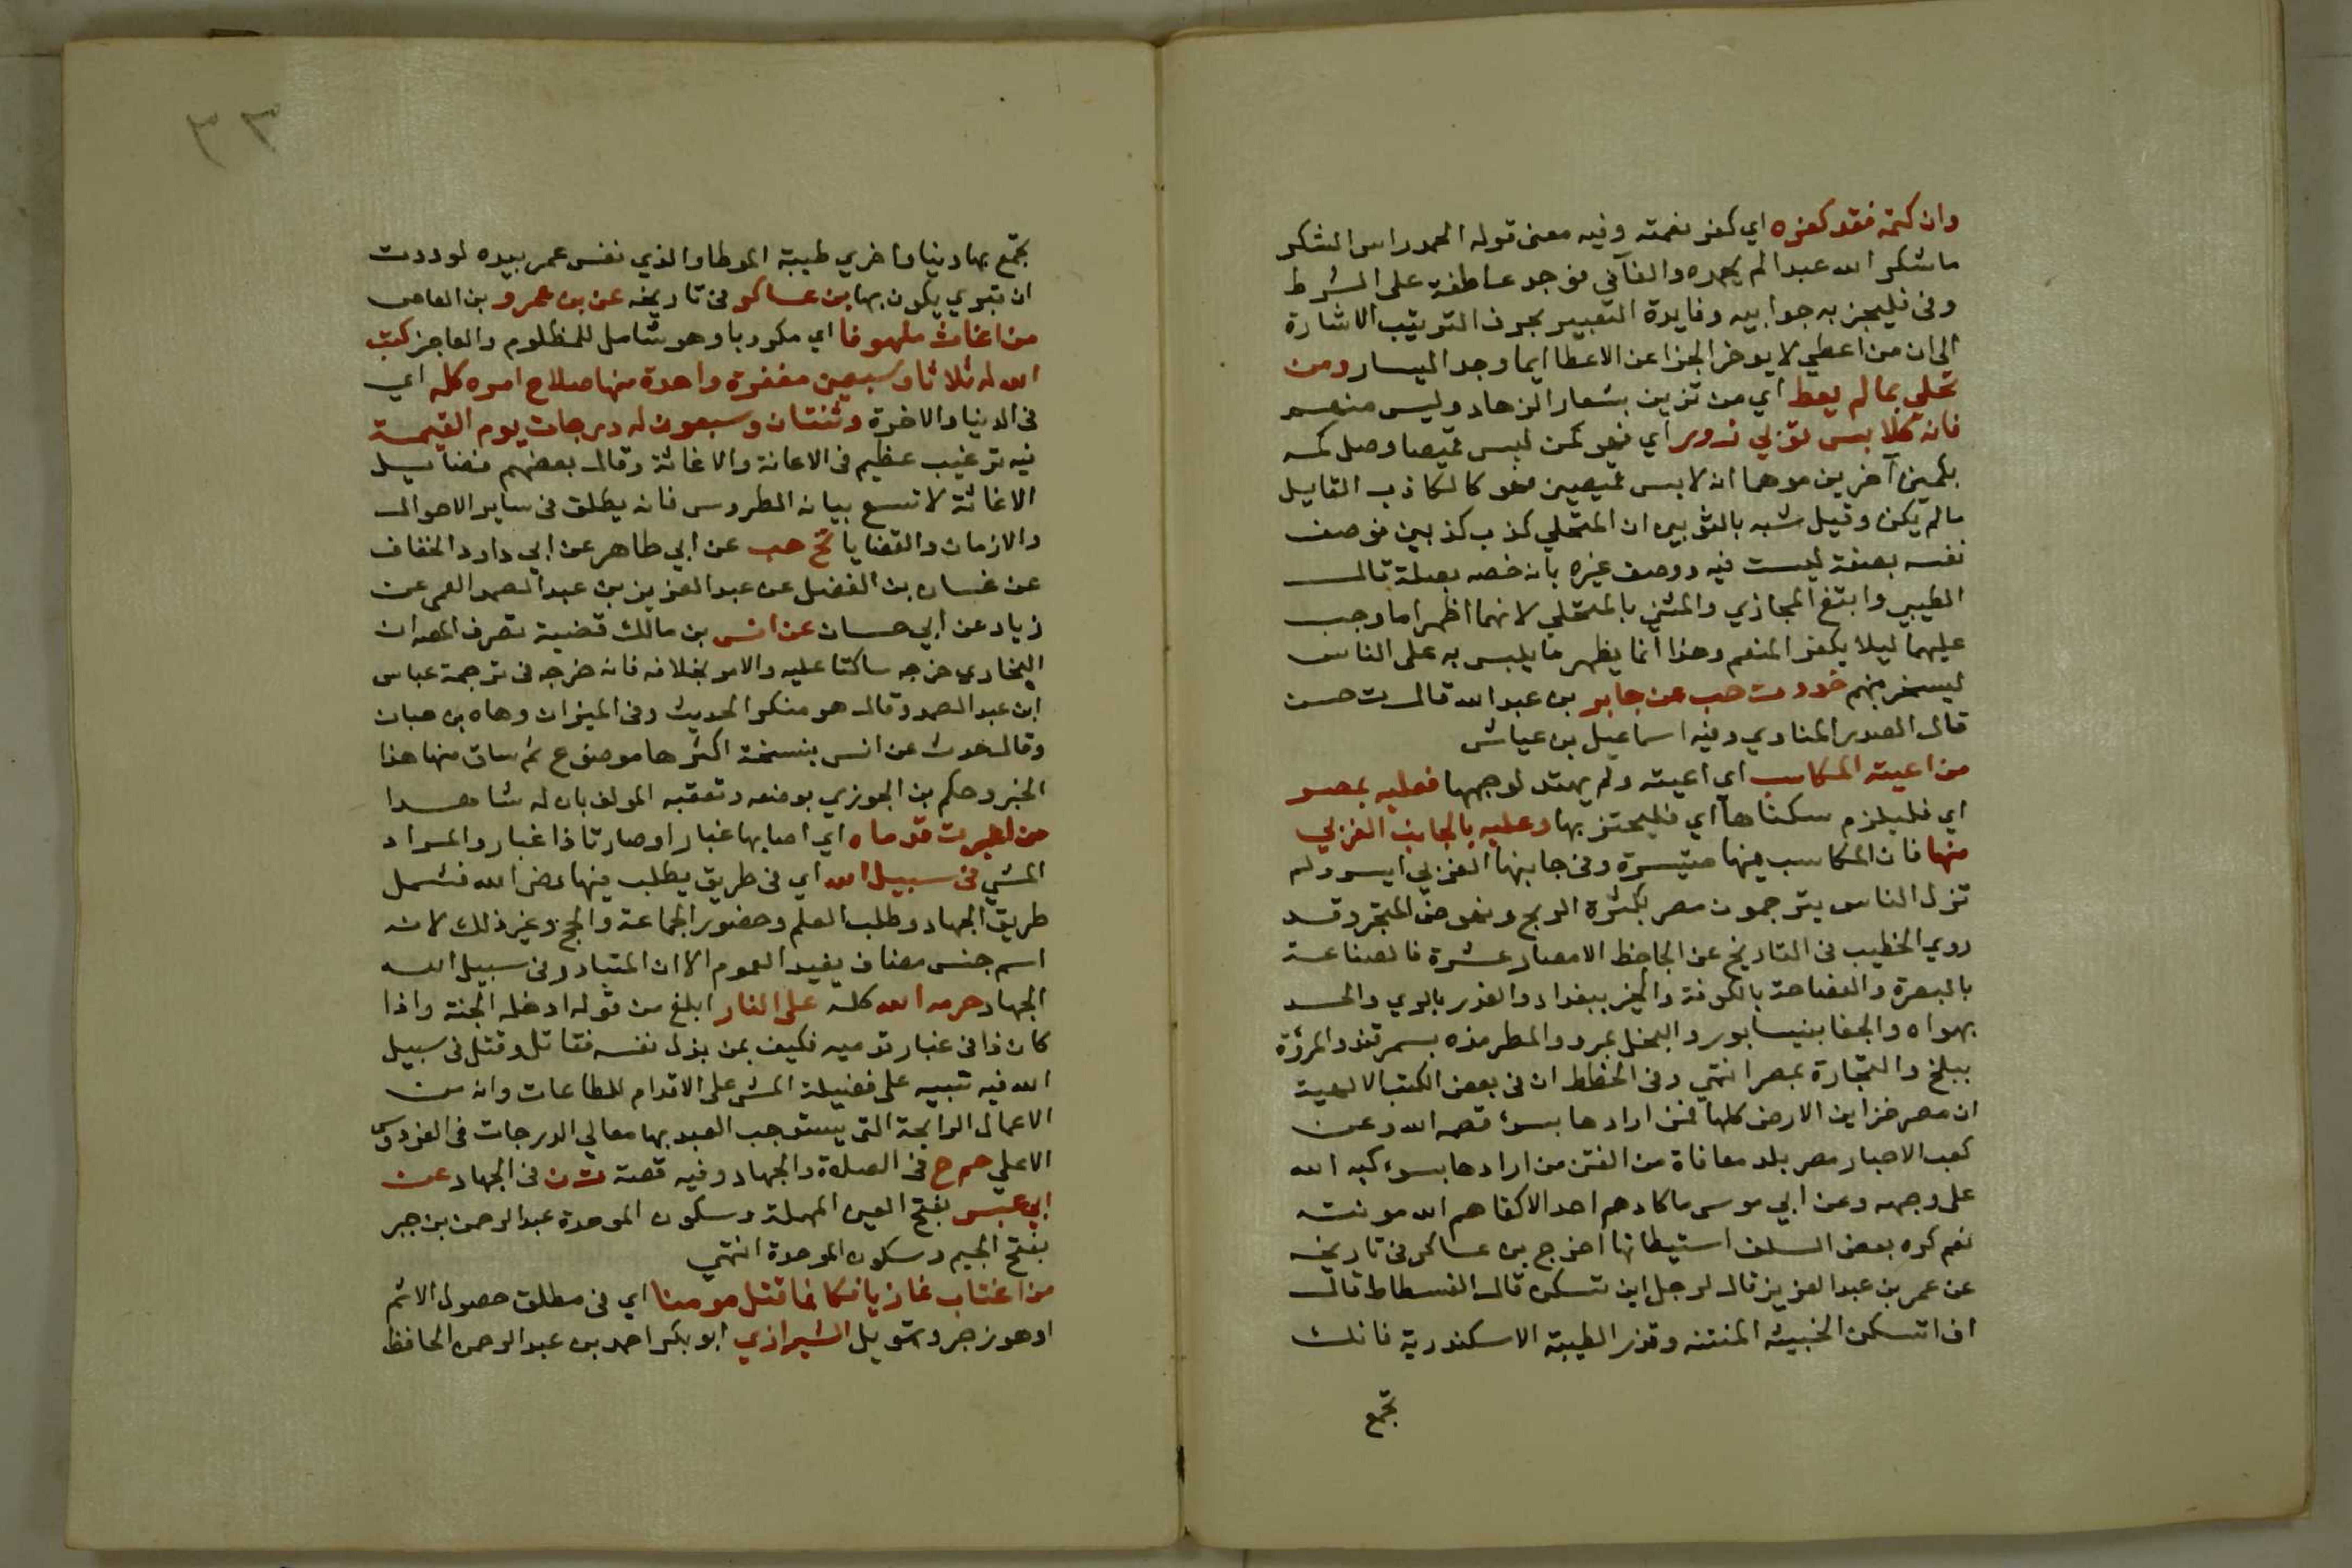 وان كتمه فقد كفره اي كفر نعمته وفيه معنى قوله الحمد راس الشكر
ما شكر الله عبد لم يحمده والفآ في فوجد عاطفة على الشرط
وفي فليجز به جوابيه وفايدة التعبير بحرف الترتيب الاشارة
الى ان من اعطي لا يوخر الجزا عن الاعطا ايما وجد اليسار ومن
تحلى بما لم يعط اي من تزين بشعار الزهاد وليس منهم
فانه كلابس ثوبي زور اي فهو كمن لبس قميصا وصل كمه
بكمين آخرين موهما انه لابس قميصين فهو كالكاذب القايل
ما لم يكن وقيل شبه بالثوبين ان المتحلي كذب كذبين فوصف
نفسه بصفة ليست فيه ووصف غيره بانه خصه بصلة قال
الطيبي وابتغ المجازي والمثني بالمتحلي لانهما اظهرا ما وجب
عليهما ليلا يكفر المنعم وهذا انما يظهر ما يلبس به على الناس
ليسخر منهم خد د ت حب عن جابر بن عبد الله قال ت حسن
قال الصدر المناوي وفيه اسماعيل بن عياش
من اعيته المكاسب اي اعيته ولم يهتد لوجهها فعليه بمصر
اي فليلزم سكناها اي فليتجر بها وعليه بالجانب الغربي
منها فان المكاسب فيها متيسرة وفي جانبها الغربي ايسر ولم
تزل الناس يترجمون مصر بكثرة الربح ونهوض المتجر وقد
روي الخطيب في التاريخ عن الجاحظ الامصار عشرة فالصناعة
بالبصرة والفصاحة بالكوفة والخير ببغداد والغدر بالري والحسد
بهراه والجفا بنيسابور والبخل بمرو والطرمذه بسمرقند والمروة
ببلخ والتجارة بمصر انتهي وفي الخطط ان في بعض الكتب الالهية
ان مصر خزاين الارض كلها فمن ارادها بسوء قصمه الله وعن
كعب الاحبار مصر بلد معافاة من الفتن من ارادها بسوء كبه الله
على وجهه وعن ابي موسى ما كادهم احد الا كفاهم الله مونته
نعم كره بعض السلف استيطانها اخرج بن عساكر في تاريخه
عن عمر بن عبد العزيز قال لرجل اين تسكن قال الفسطاط قال
اف اتسكن الخبيثه المنتنه وتذر الطيبة الاسكندرية فانك
تجمع
٣٣
تجمع بها دنيا واخري طيبة الموطا والذي نفس عمر بيده لوددت
ان قبري يكون بها بن عساكر في تاريخه عن بن عمرو بن العاص
من اغاث ملهوفا اي مكروبا وهو شامل للمظلوم والعاجز كتب
الله له ثلاثا وسبعين مغفرة واحدة منها صلاح امره كله اي
في الدنيا والاخرة وثنتان وسبعون له درجات يوم القيمة
فيه ترغيب عظيم في الاعانة والاغاثة وقال بعضهم فضايل
الاغاثة لا تسع بيانه الطروس فانه يطلق في ساير الاحوال
والازمان والقضايا تخ هب عن ابي طاهر عن ابي داود الخفاف
عن غسان بن الفضل عن عبد العزيز بن عبد الصمد العمي عن
زياد عن ابي حسان عن انس بن مالك قضية تصرف المص ان
البخاري خرجه ساكتا عليه والامر بخلافه فانه خرجه في ترجمة عباس
ابن عبد الصمد وقال هو منكر الحديث وفي الميزان وهاه بن حبان
وقال حدث عن انس بنسخة اكثرها موضوع ثم ساق منها هذا
الخبر وحكم بن الجوزي بوضعه وتعقبه المولف بان له شاهدا
من اغبرت قدماه اي اصابها غبار او صارتا ذا غبار والمراد
المشي في سبيل الله اي في طريق يطلب فيها رضى الله فشمل
طريق الجهاد وطلب العلم وحضور الجماعة والحج وغير ذلك لانه
اسم جنس مضاف يفيد العموم الا ان المتبادر في سبيل الله
الجهاد حرمه الله كله على النار ابلغ من قوله ادخله الجنة واذا
كان ذا في غبار قدميه فكيف بمن بذل نفسه فقاتل وقتل في سبيل
الله فيه تنبيه على فضيلة المشي على الاقدام للطاعات وانه من
الاعمال الرابحة التي يستوجب العبد بها معالي الدرجات في الفردوس
الاعلي حم خ في الصلاة والجهاد وفيه قصة ت ن في الجهاد عن
ابي عبس بفتح العين المهملة وسكون الموحدة عبد الرحمن بن جبر
بفتح الجيم وسكون الموحدة انتهي
من اغتاب غازيا فكانما قتل مومنا اي في مطلق حصول الاثم
او هو زجر وتهويل الشيرازي ابو بكر احمد بن عبد الرحمن الحافظ